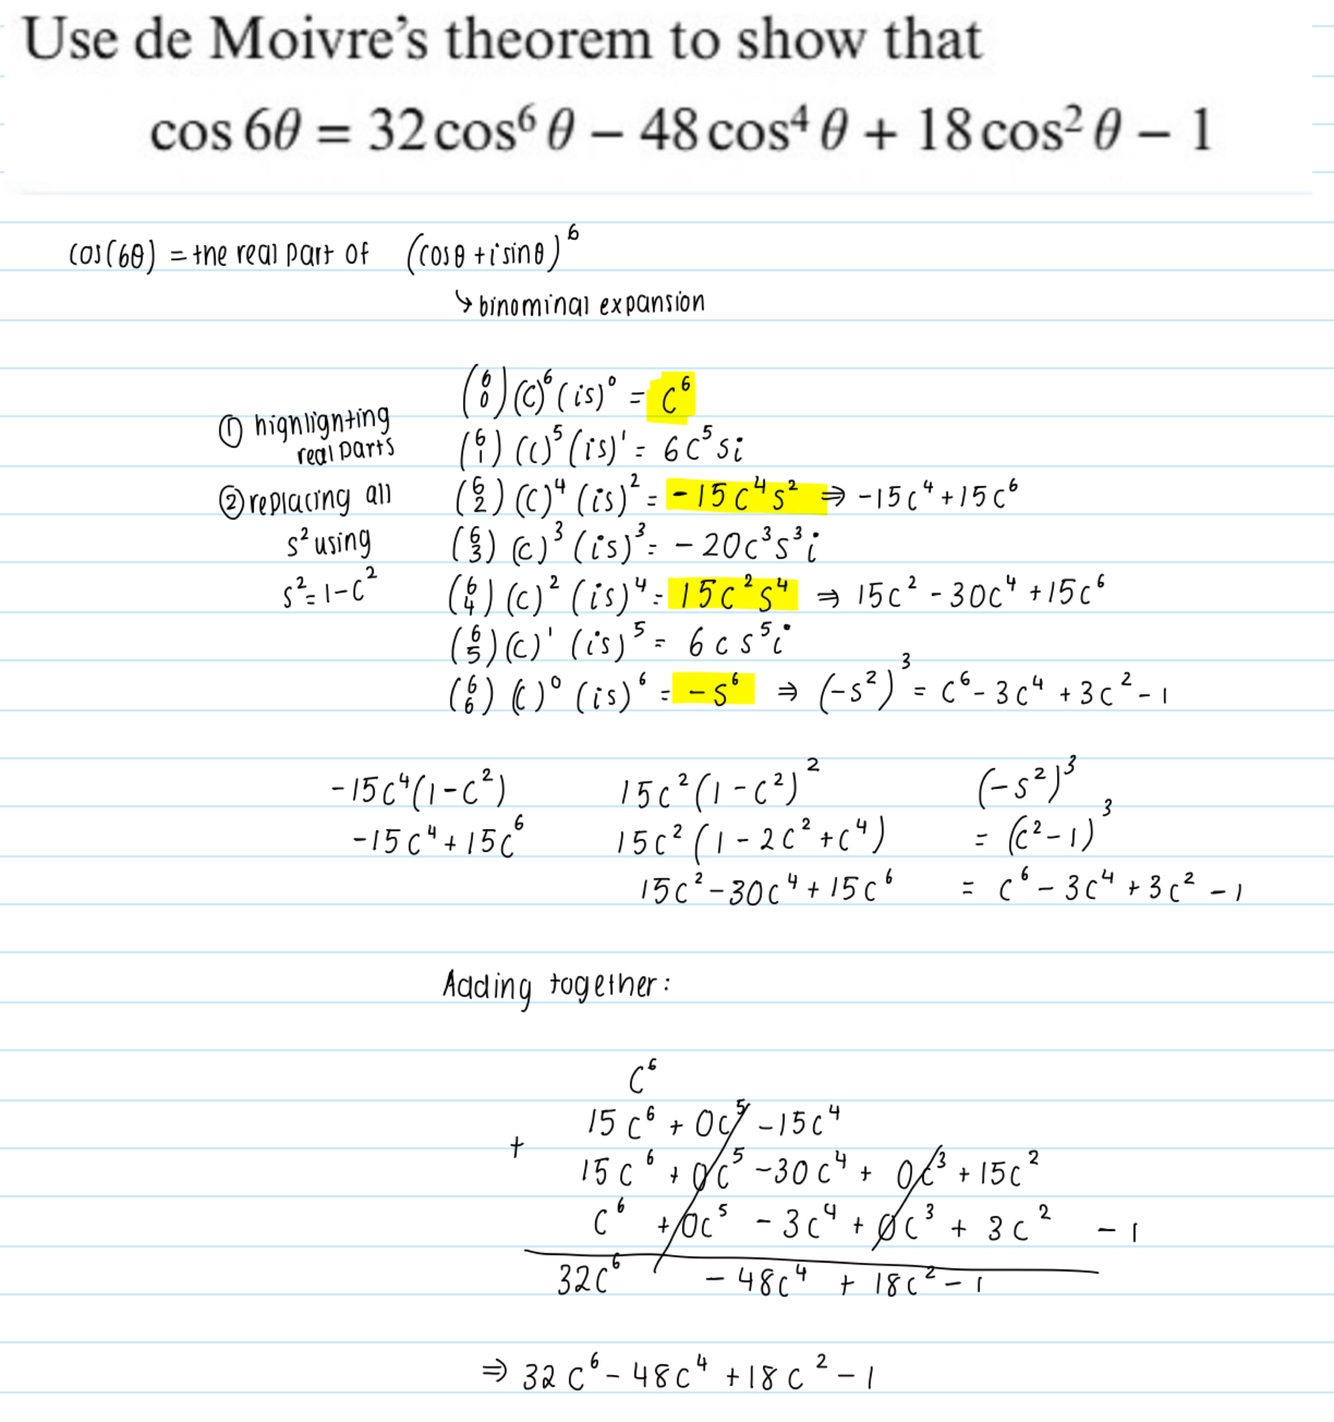 Use de Moivre's theorem to show that
cos 6θ = 32 cos⁶ θ − 48 cos⁴ θ + 18 cos² θ − 1
cos(6θ) = the real part of (cosθ + i sinθ)⁶
↳ binominal expansion
(6 0)(c)⁶(is)⁰ = c⁶
① highlighting real parts
(6 1)(c)⁵(is)¹ = 6c⁵si
② replacing all s² using s² = 1-c²
(6 2)(c)⁴(is)² = -15c⁴s² ⇒ -15c⁴ + 15c⁶
(6 3)(c)³(is)³ = -20c³s³i
(6 4)(c)²(is)⁴ = 15c²s⁴ ⇒ 15c² - 30c⁴ + 15c⁶
(6 5)(c)¹(is)⁵ = 6cs⁵i
(6 6)(c)⁰(is)⁶ = -s⁶ ⇒ (-s²)³ = c⁶ - 3c⁴ + 3c² - 1
-15c⁴(1-c²) 15c²(1-c²)² (-s²)³
-15c⁴ + 15c⁶ 15c²(1 - 2c² + c⁴) = (c²-1)³
15c² - 30c⁴ + 15c⁶ = c⁶ - 3c⁴ + 3c² - 1
Adding together:
c⁶
15c⁶ + 0c⁵ - 15c⁴
+
15c⁶ + 0c⁵ - 30c⁴ + 0c³ + 15c²
c⁶ + 0c⁵ - 3c⁴ + 0c³ + 3c² - 1
32c⁶ - 48c⁴ + 18c² - 1
⇒ 32c⁶ - 48c⁴ + 18c² - 1